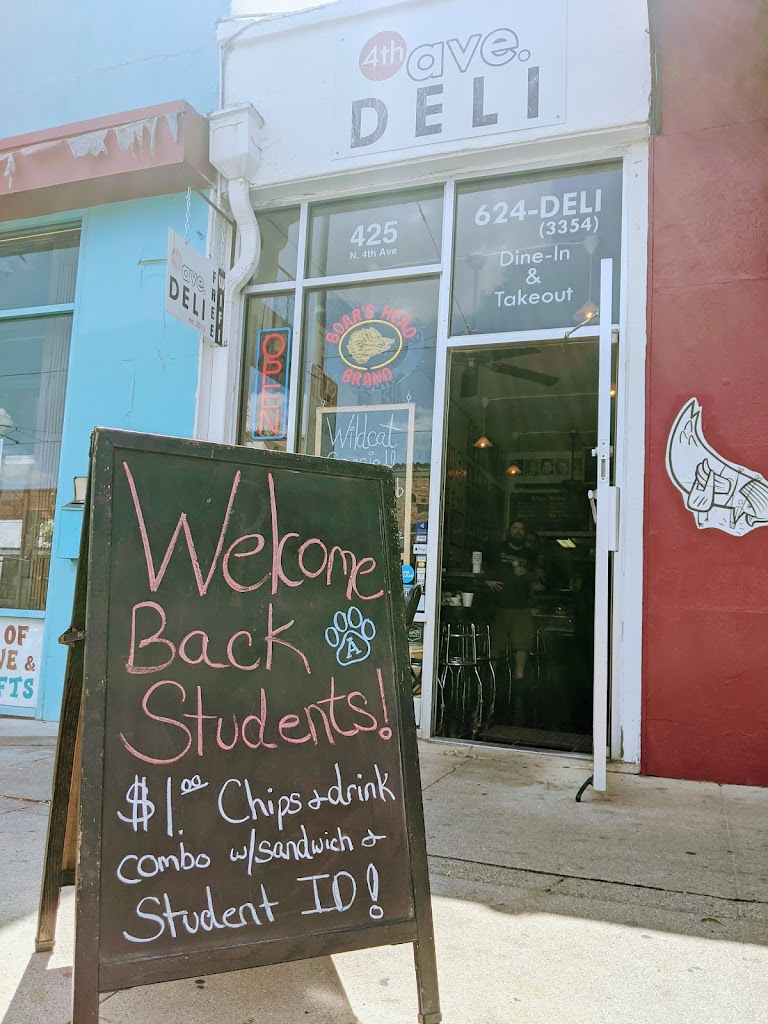 4th ave.
DELI
425
N. 4th Ave
624-DELI
(3354)
Dine-In
&
Takeout
ave.
DELI
FREE
WIFI
OPEN
BOAR'S HEAD
BRAND
Wildcat
Welcome
Back
A
Students!
$1.00 Chips & drink
combo w/sandwich &
Student ID!
OF
&